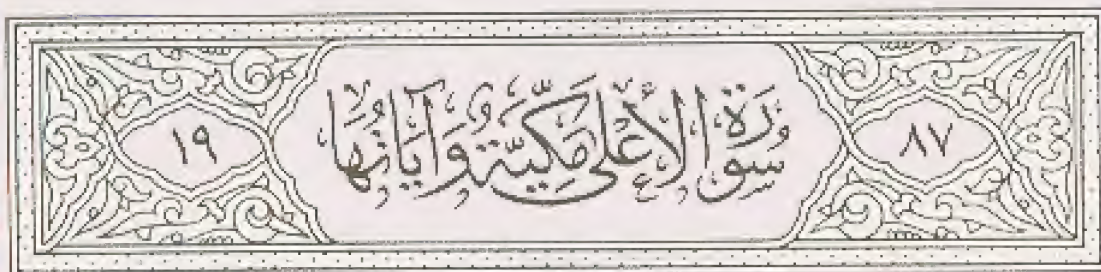 ٨٧
سُورَةُ الأَعْلَى مَكِّيَّةٌ وَآيَاتُهَا
١٩